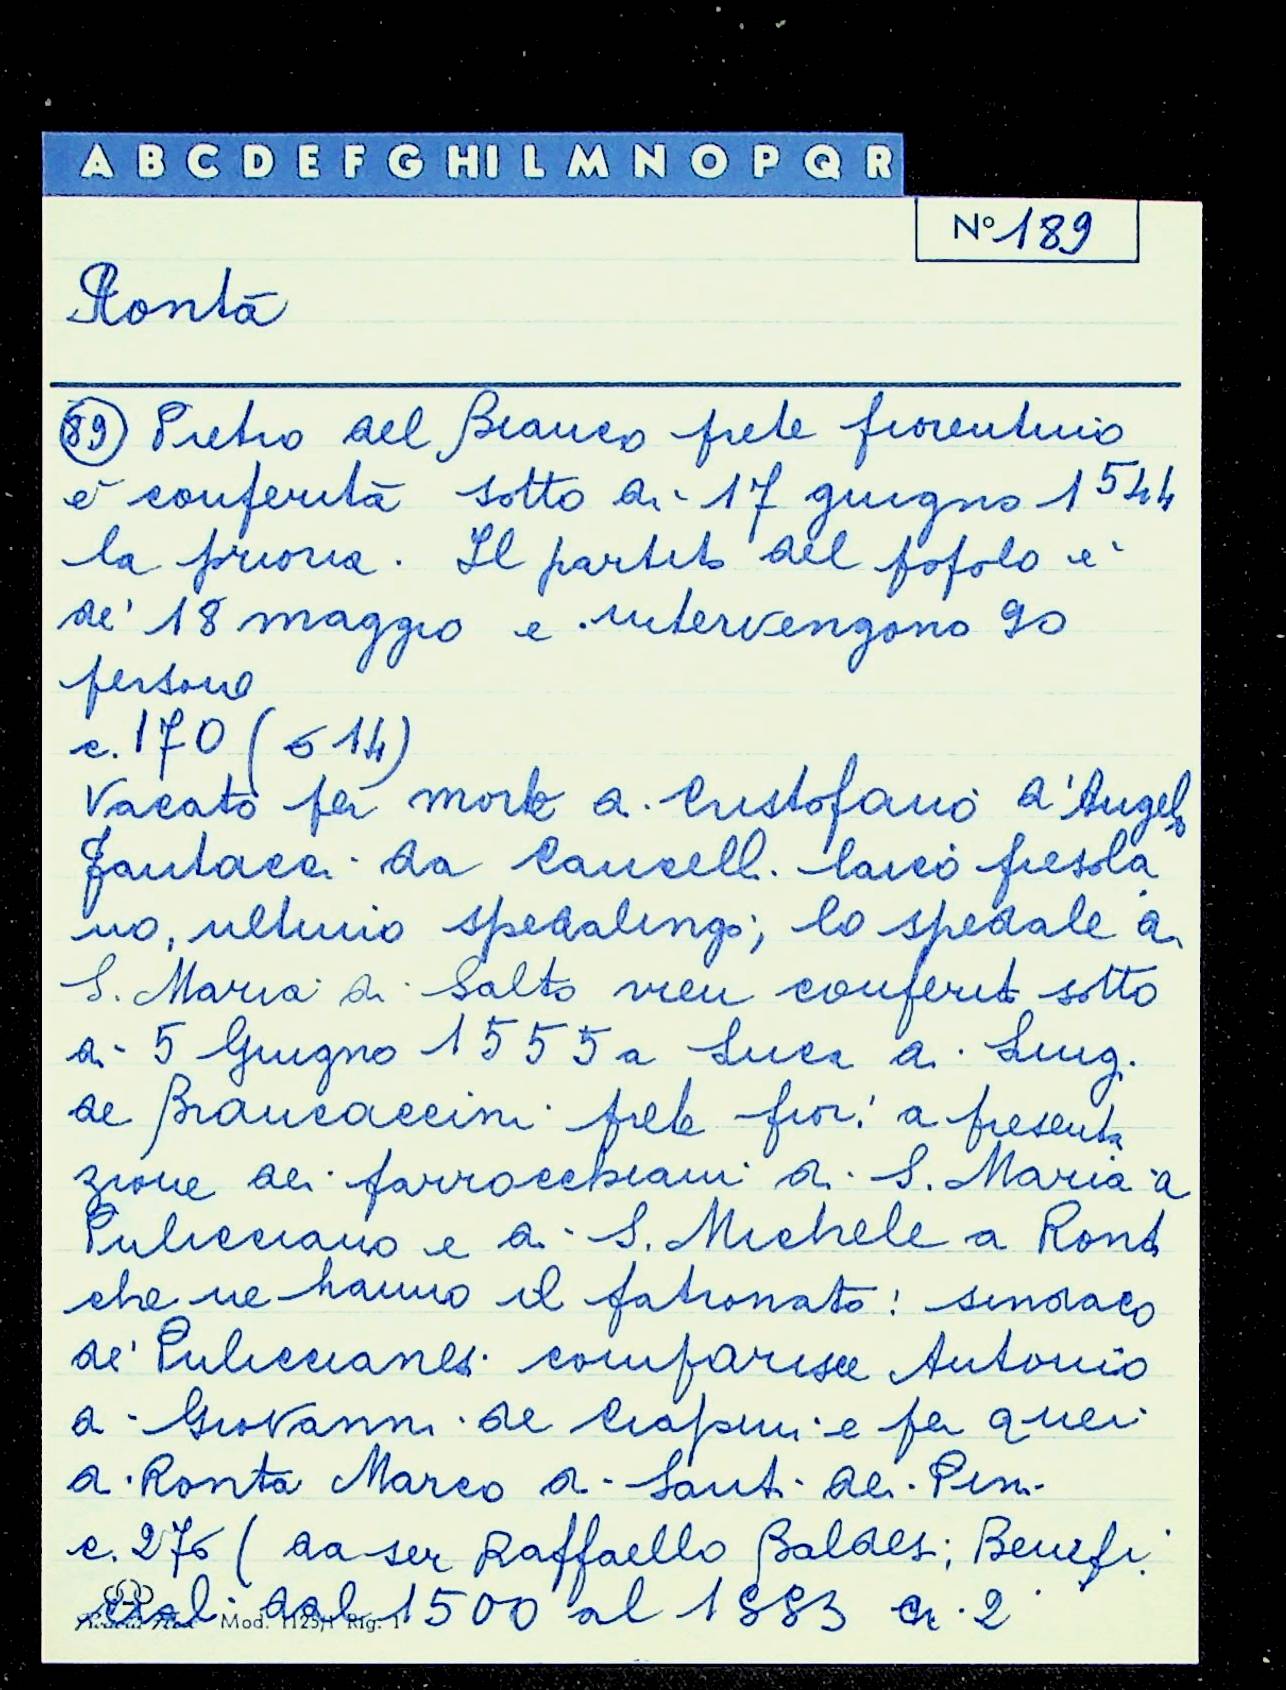 A B C D E F G HI L M N O P Q R
Nº 189
Ronta
89 Pietro del Bianco prete fiorentino
è conferita sotto di 17 giugno 1544
la prioria. Il partito del popolo è
de' 18 maggio e intervengono 90
persone
c. 170 (614)
Vacato per morte di Cristofano d'Angelo
Fantacci da Cancelli laico fiesola
no, ultimo spedalingo; lo spedale di
S. Maria di Salto vien conferito sotto
di 5 Giugno 1555 a Luca di Luig.
de Brancaccini prete fior. a presenta
zione dei parrocchiani di S. Maria a
Pulicciano e di S. Michele a Ronta
che ne hanno il patronato: sindaco
de' Puliccianesi comparisce Antonio
di Giovanni de Ciapini e per quei
di Ronta Marco di Santi dei Pini
c. 276 (da ser Raffaello Baldesi; Benefi
dal 1500 al 1883 di 2
Mod. 1125/1 Rig. 1